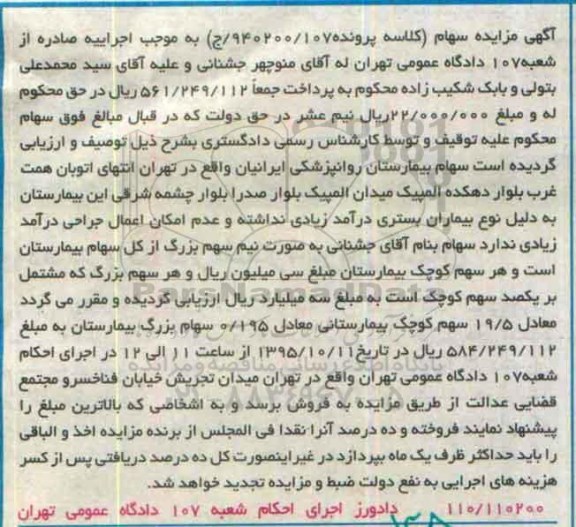 آگهی مزایده سهام (کلاسه پرونده۹۴۰۲۰۰/۱۰۷/ج) به موجب اجراییه صادره از
شعبه۱۰۷ دادگاه عمومی تهران له آقای منوچهر جشنانی و علیه آقای سید محمدعلی
بتولی و بابک شکیب زاده محکوم به پرداخت جمعاً ۵۶۱/۲۴۹/۱۱۲ ریال در حق محکوم
له و مبلغ ۲۲/۰۰۰/۰۰۰ریال نیم عشر در حق دولت که در قبال مبالغ فوق سهام
محکوم علیه توقیف و توسط کارشناس رسمی دادگستری بشرح ذیل توصیف و ارزیابی
گردیده است سهام بیمارستان روانپزشکی ایرانیان واقع در تهران انتهای اتوبان همت
غرب بلوار دهکده المپیک میدان المپیک بلوار صدرا بلوار چشمه شرقی این بیمارستان
به دلیل نوع بیماران بستری درآمد زیادی نداشته و عدم امکان اعمال جراحی درآمد
زیادی ندارد سهام بنام آقای جشنانی به صورت نیم سهم بزرگ از کل سهام بیمارستان
است و هر سهم کوچک بیمارستان مبلغ سی میلیون ریال و هر سهم بزرگ که مشتمل
بر یکصد سهم کوچک است به مبلغ سه میلیارد ریال ارزیابی گردیده و مقرر می گردد
معادل ۱۹/۵ سهم کوچک بیمارستانی معادل ۰/۱۹۵ سهام بزرگ بیمارستان به مبلغ
۵۸۴/۲۴۹/۱۱۲ ریال در تاریخ۱۳۹۵/۱۰/۱۱ از ساعت ۱۱ الی ۱۲ در اجرای احکام
شعبه۱۰۷ دادگاه عمومی تهران واقع در تهران میدان تجریش خیابان فناخسرو مجتمع
قضایی عدالت از طریق مزایده به فروش برسد و به اشخاصی که بالاترین مبلغ را
پیشنهاد نمایند فروخته و ده درصد آنرا نقدا فی المجلس از برنده مزایده اخذ و الباقی
را باید حداکثر ظرف یک ماه بپردازد در غیر اینصورت کل ده درصد دریافتی پس از کسر
هزینه های اجرایی به نفع دولت ضبط و مزایده تجدید خواهد شد.
۱۱۰/۱۱۰۲۰۰ دادورز اجرای احکام شعبه ۱۰۷ دادگاه عمومی تهران
ParsNamadData